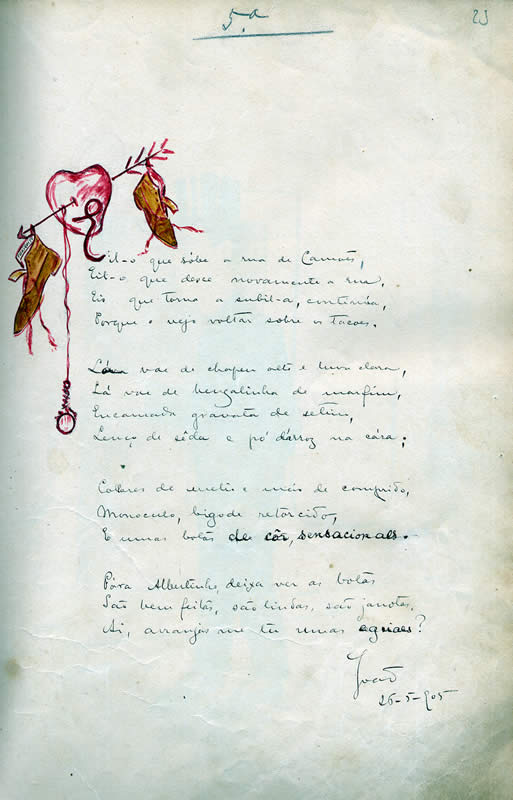 5.ª
23
Eil-o que sóbe a rua de Camões,
Eil-o que desce novamente a rua,
Eis que torna a subil-a, continúa,
Porque o vejo voltar sobre os tacões.
Lá vae de chapeu alto e luva clara,
Lá vae de bengalinha de marfim,
Encarnada gravata de setim,
Lenço de sêda e pó d'arroz na cára;
Collares de metro e meio de comprido,
Monoculo, bigode retorcido,
E umas botas de côr, sensacionaes.
Póra Albertinho, deixa ver as botas
São bem feitas, são lindas, são janotas,
Ai, arranjas-me tu umas eguaes?
João
26-5-905